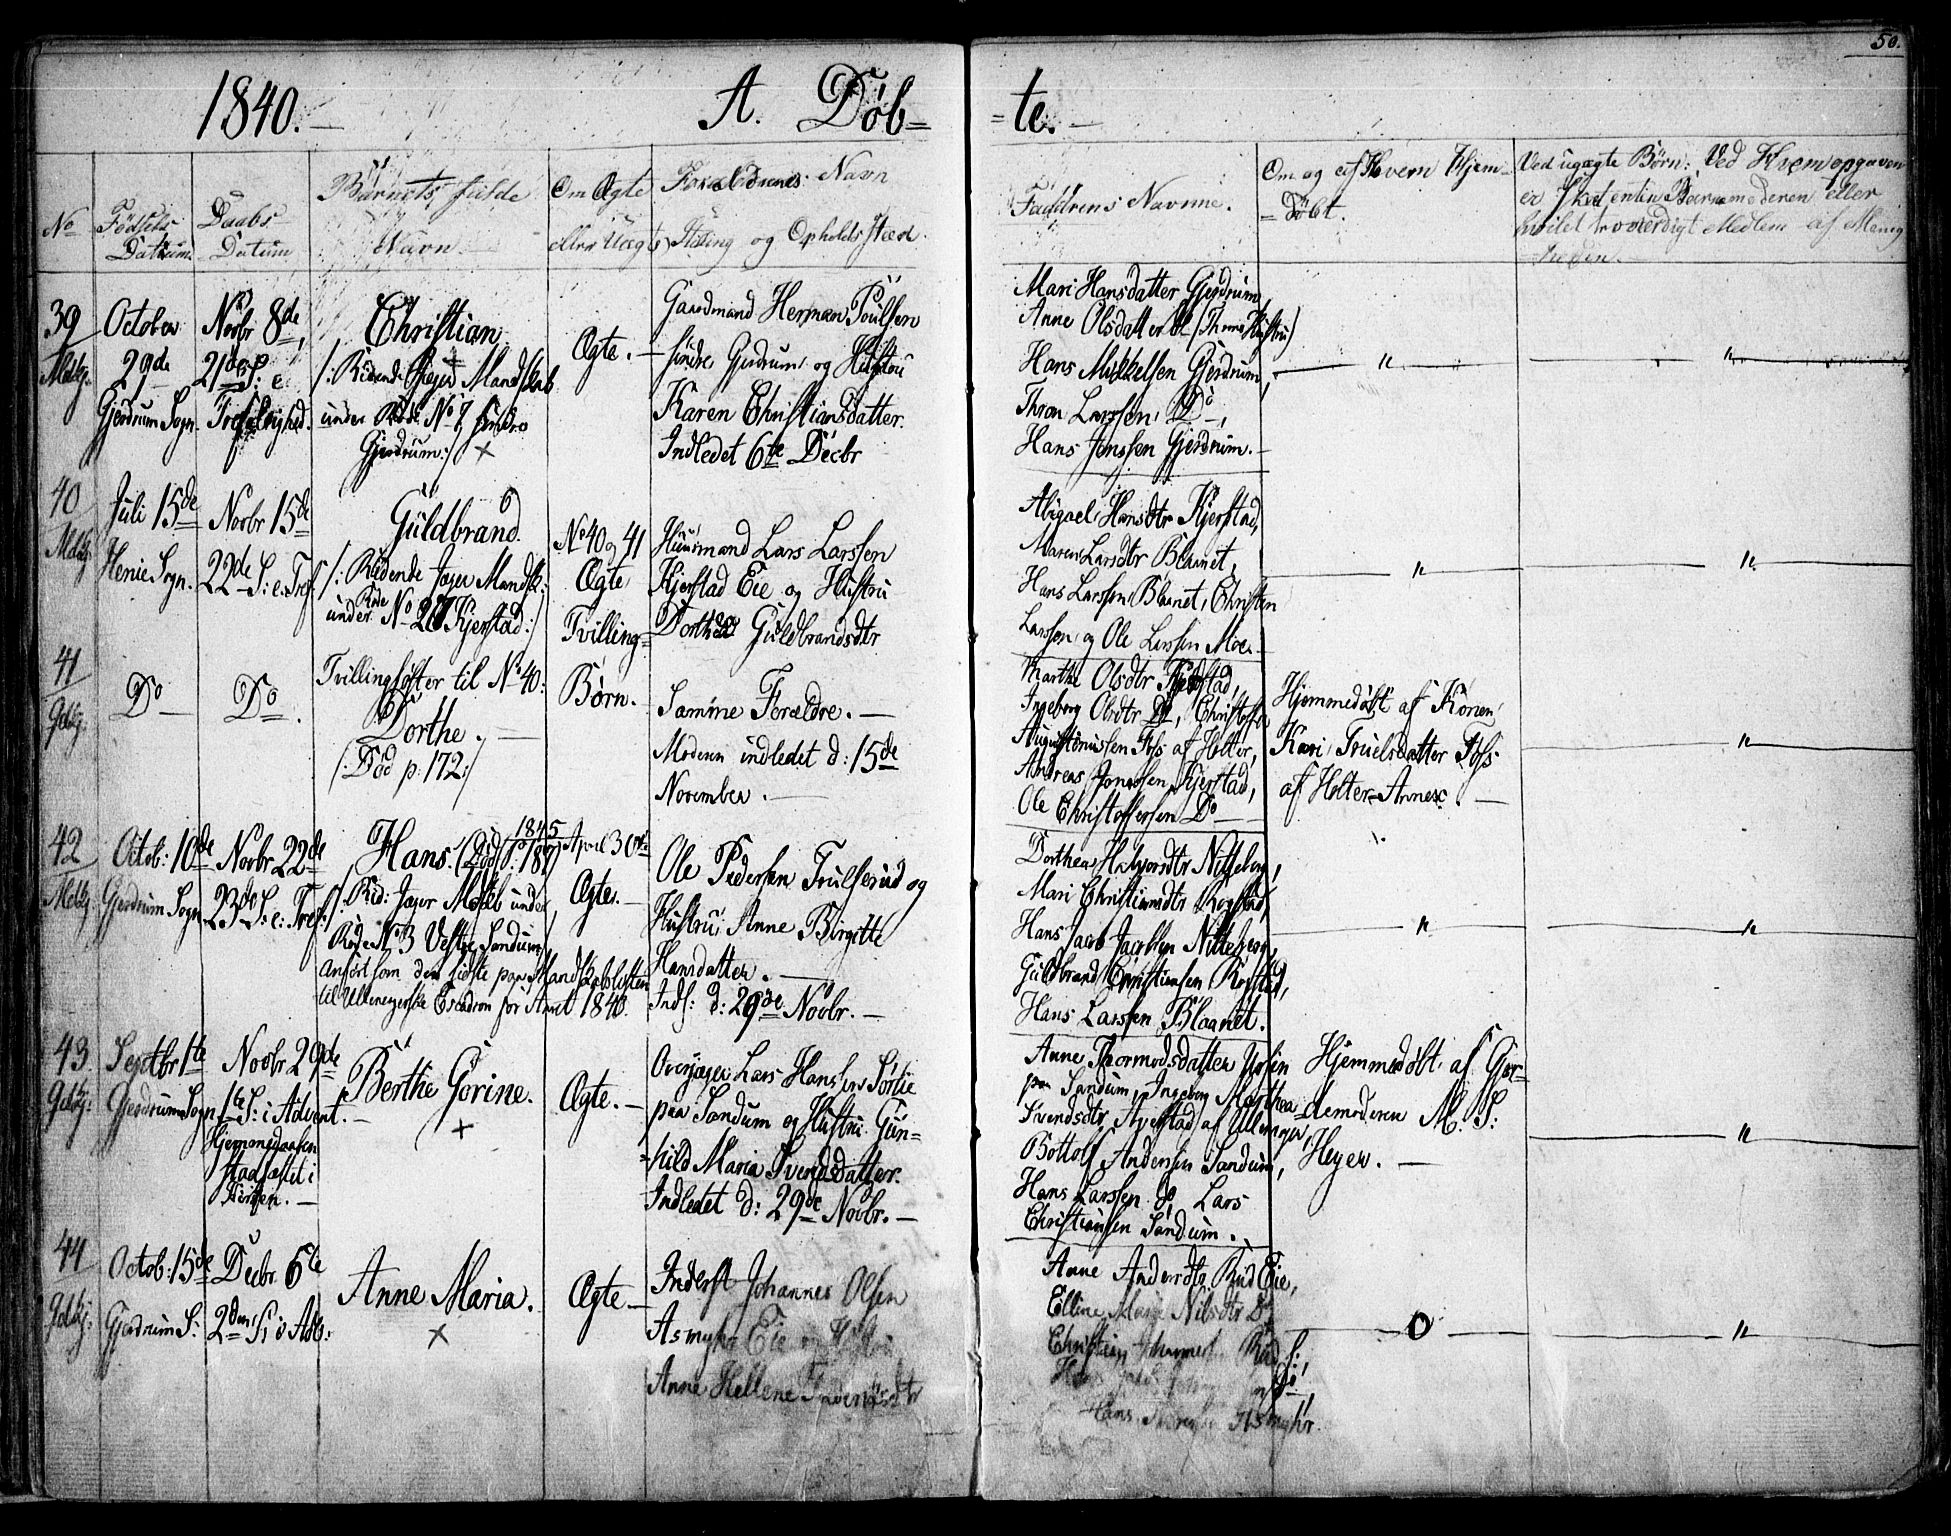 50.
1840.
A. Døb=
=te.
No
Fødsels
Datum.
Daabs
Datum
Barnets fulde
Navn
Om Ægte
eller Uægte
Forældrenes Navn
Stilling og Opholdssted.
Faddrens Navne.
Om og af Hvem Hjem=
=døbt.
Ved uægte Børn: Ved Hvem opgaven
er skeet enten Barnemoderen eller
hvilet troværdigt Medlem af Menig
heden.
39
Mdkj.
October
29de
Gjerdrum Sogn.
Novbr 8de,
21de S: e.
Trefoldighed.
Christian
/: Ridende Jæger Mandskab
under Rode No 7 søndre
Gjerdrum :/ +
Ægte. —
Gaardmand Herman Poulsen
søndre Gjerdrum og Hustru
Karen Christiansdatter.
Indledet 6te Decbr
Mari Hansdatter Gjerdrum,
Anne Olsdatter
Hans Mikkelsen Gjerdrum,
Thron Larssen, Do,
Hans Jenssen Gjerdrum.
"
"
40
Mdkj
Juli 15de
Henie Sogn.
Novbr 15de
22de S: e. Tref.
Guldbrand.
/: Ridende Jæger Mandsk:
under Rode No 27 Kjerstad :/
No 40 og 41
Ægte
Tvilling=
Huusmand Lars Larssen
Kjerstad Eie og Hustru
Dorthea Guldbrandsdtr
Abigael Hansdtr Kjerstad,
Maren Larsdtr Blaanet,
Hans Larssen Blaanet, Christen
Larssen og Ole Larssen Moe. —
"
"
41
Qdkj.
Do —
Do.
Tvillingsøster til No 40:
Dorthe. —
(: Død p. 172:/
Børn.
Samme Forældre. —
Moderen indledet d: 15de
November. —
Marthe Olsdtr Kjerstad,
Ingeborg Olsdtr Do, Christoffer
Augustinussen Foss af Holter,
Andreas Jonassen Kjerstad,
Ole Christoffersen Do —
Hjemmedøbt af Konen
Kari Truelsdatter Foss
af Holter=Annex. —
"
42
Mdkj.
Octob: 10de
Gjerdrum Sogn
Novbr 22de
23de S: e: Tref:
Hans. (Død
1845 April 30te
/: Rid: Jæger Mdskb under
Rode No 3 Vestre Sandum,
Anført som den sidste paa Mandskabslisten
til Ullensagerske Escadron for Aaret 1840.
Ægte. —
Ole Pedersen Trulserud og
Hustru Anne Birgitte
Hansdatter. —
Indl: d: 29de Novbr. —
Dorthea Halvorsdtr Nitteberg,
Mari Christiansdtr Rogstad,
Hans Jacob Jacobsen Nitteberg,
Guldbrand Christiansen Rogstad,
Hans Larssen Blaanet.
"
"
43.
Qdkj:
Septbr 1ste
Gjerdrum Sogn
Novbr 29de
1ste S: i Advent. —
Hjemmedaaben
stadfæstet i
Kirken. —
Berthe Gorine.
+
Ægte. —
Overjæger Lars Hansen Sørlie
paa Sandum og Hustru Gun=
=hild Maria Svendsdatter.
Indledet d: 29de Novbr. —
Anne Thormodsdatter
paa Sandum, Ingeborg Marthea
Svendsdtr af Ullensager,
Bottolf Andersen Sandum,
Hans Larssen Do, Lars
Christiansen Sandum.
Hjemmedøbt af Gjor=
=demoderen M. S:
Heyer. —
"
44
Qdkj.
Octob: 15de
Gjerdrum S:
Decbr. 6te
2den S: i Adv:
Anne Maria.
+
Ægte —
Inderst Johannes Olsen
Asmyhr Eie og Hustru
Anne Hellene
Anne Andersdtr Ruud Eie,
Elline Marie Nilsdtr Do
Christian
Hans Asmyhr.
O
"